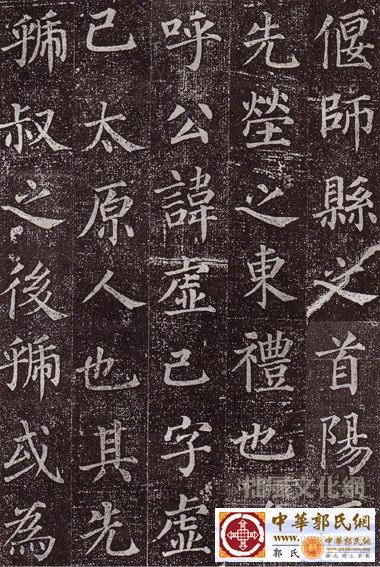 偃師縣之首陽
先塋之東禮也
呼公諱虛己字虛
己太原人也其先
虢叔之後虢或為
中華郭氏網
www.
郭氏
中華郭氏網